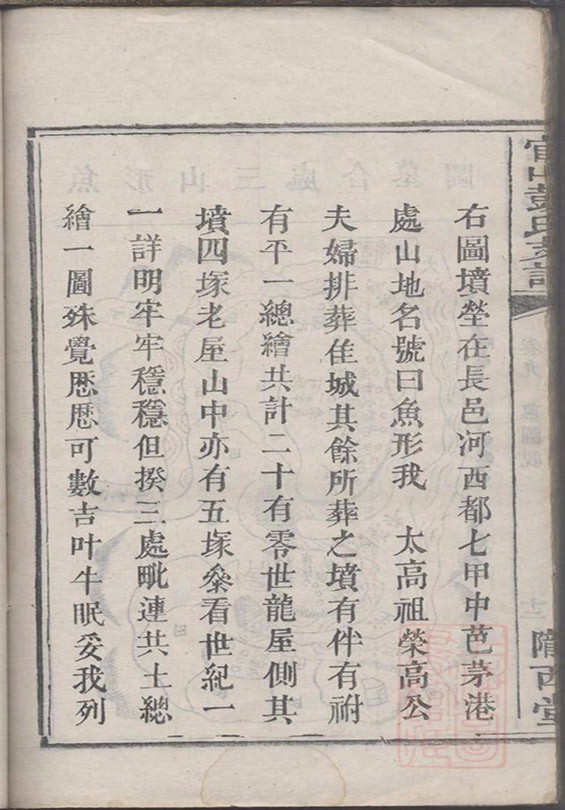 右圖墳塋在長邑河西都七甲中芭茅港
處山地名號曰魚形我　太高祖榮高公
夫婦排葬佳城其餘所葬之墳有伴有祔
有平一總繪共計二十有零世龍屋側其
墳四塚老屋山中亦有五塚叅看世紀一
一詳明牢牢穩穩但揆三處毗連共土總
繪一圖殊覺歷歷可數吉叶牛眠妥我列